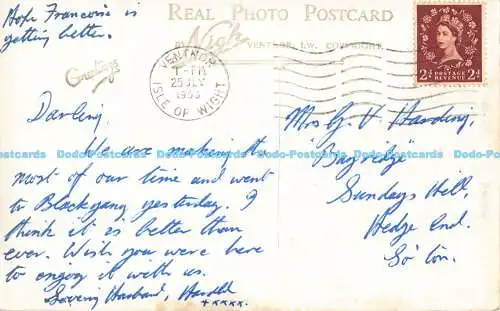 Hope Francoise is
getting better.
REAL PHOTO POSTCARD
Nigh
VENTNOR, I.W. COPYRIGHT.
Greetings
VENTNOR
1-PM
25 JLY
1955
ISLE OF WIGHT
2½D POSTAGE REVENUE 2½D
Darling,
We are making the
most of our time and went
to Blackgang yesterday. I
think it is better than
ever. Wish you were here
to enjoy it with us.
Loving Husband, Harold
+xxxx.
Mrs G V Harding,
"Bayridge"
Sundays Hill,
Hedge End.
So'ton.
Dodo-Postcards Dodo-Postcards Dodo-Postcards Dodo-Postcards Dodo-Postcards